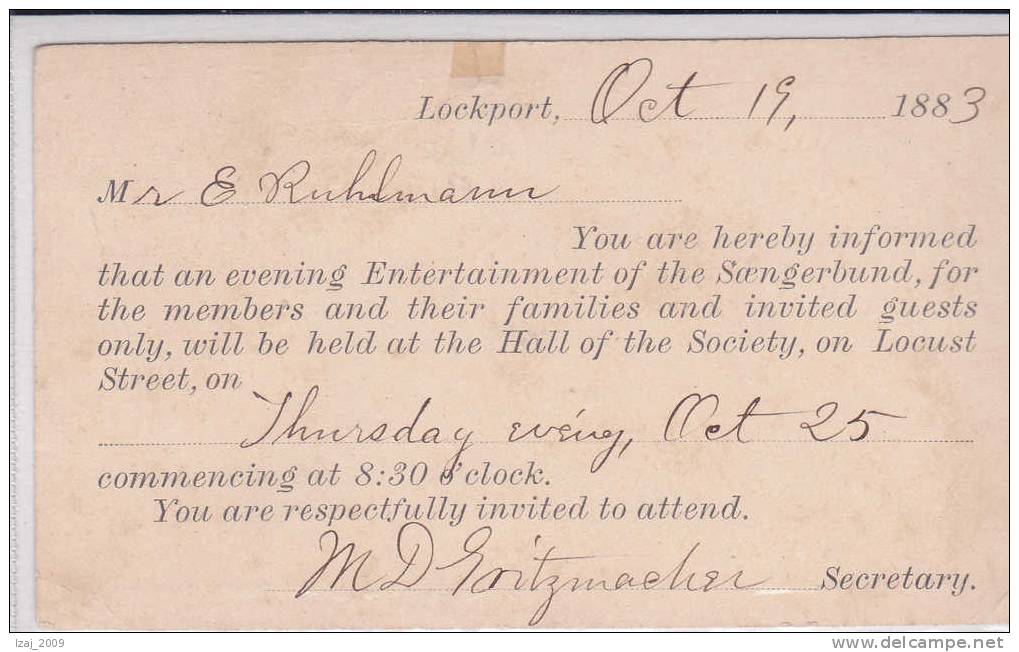 Lockport, Oct 19, 1883
Mr E Ruhlmann
You are hereby informed
that an evening Entertainment of the Sængerbund, for
the members and their families and invited guests
only, will be held at the Hall of the Society, on Locust
Street, on
Thursday eve'ng, Oct 25
commencing at 8:30 o'clock.
You are respectfully invited to attend.
M D Secretary.
Izaj_2009
www.delcampe.net